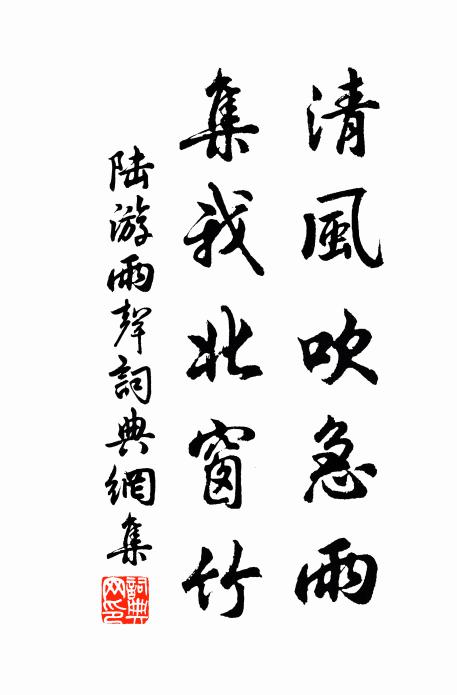 清風吹急雨
集我北窗竹
陸游雨聲詞典網集
詞典网印